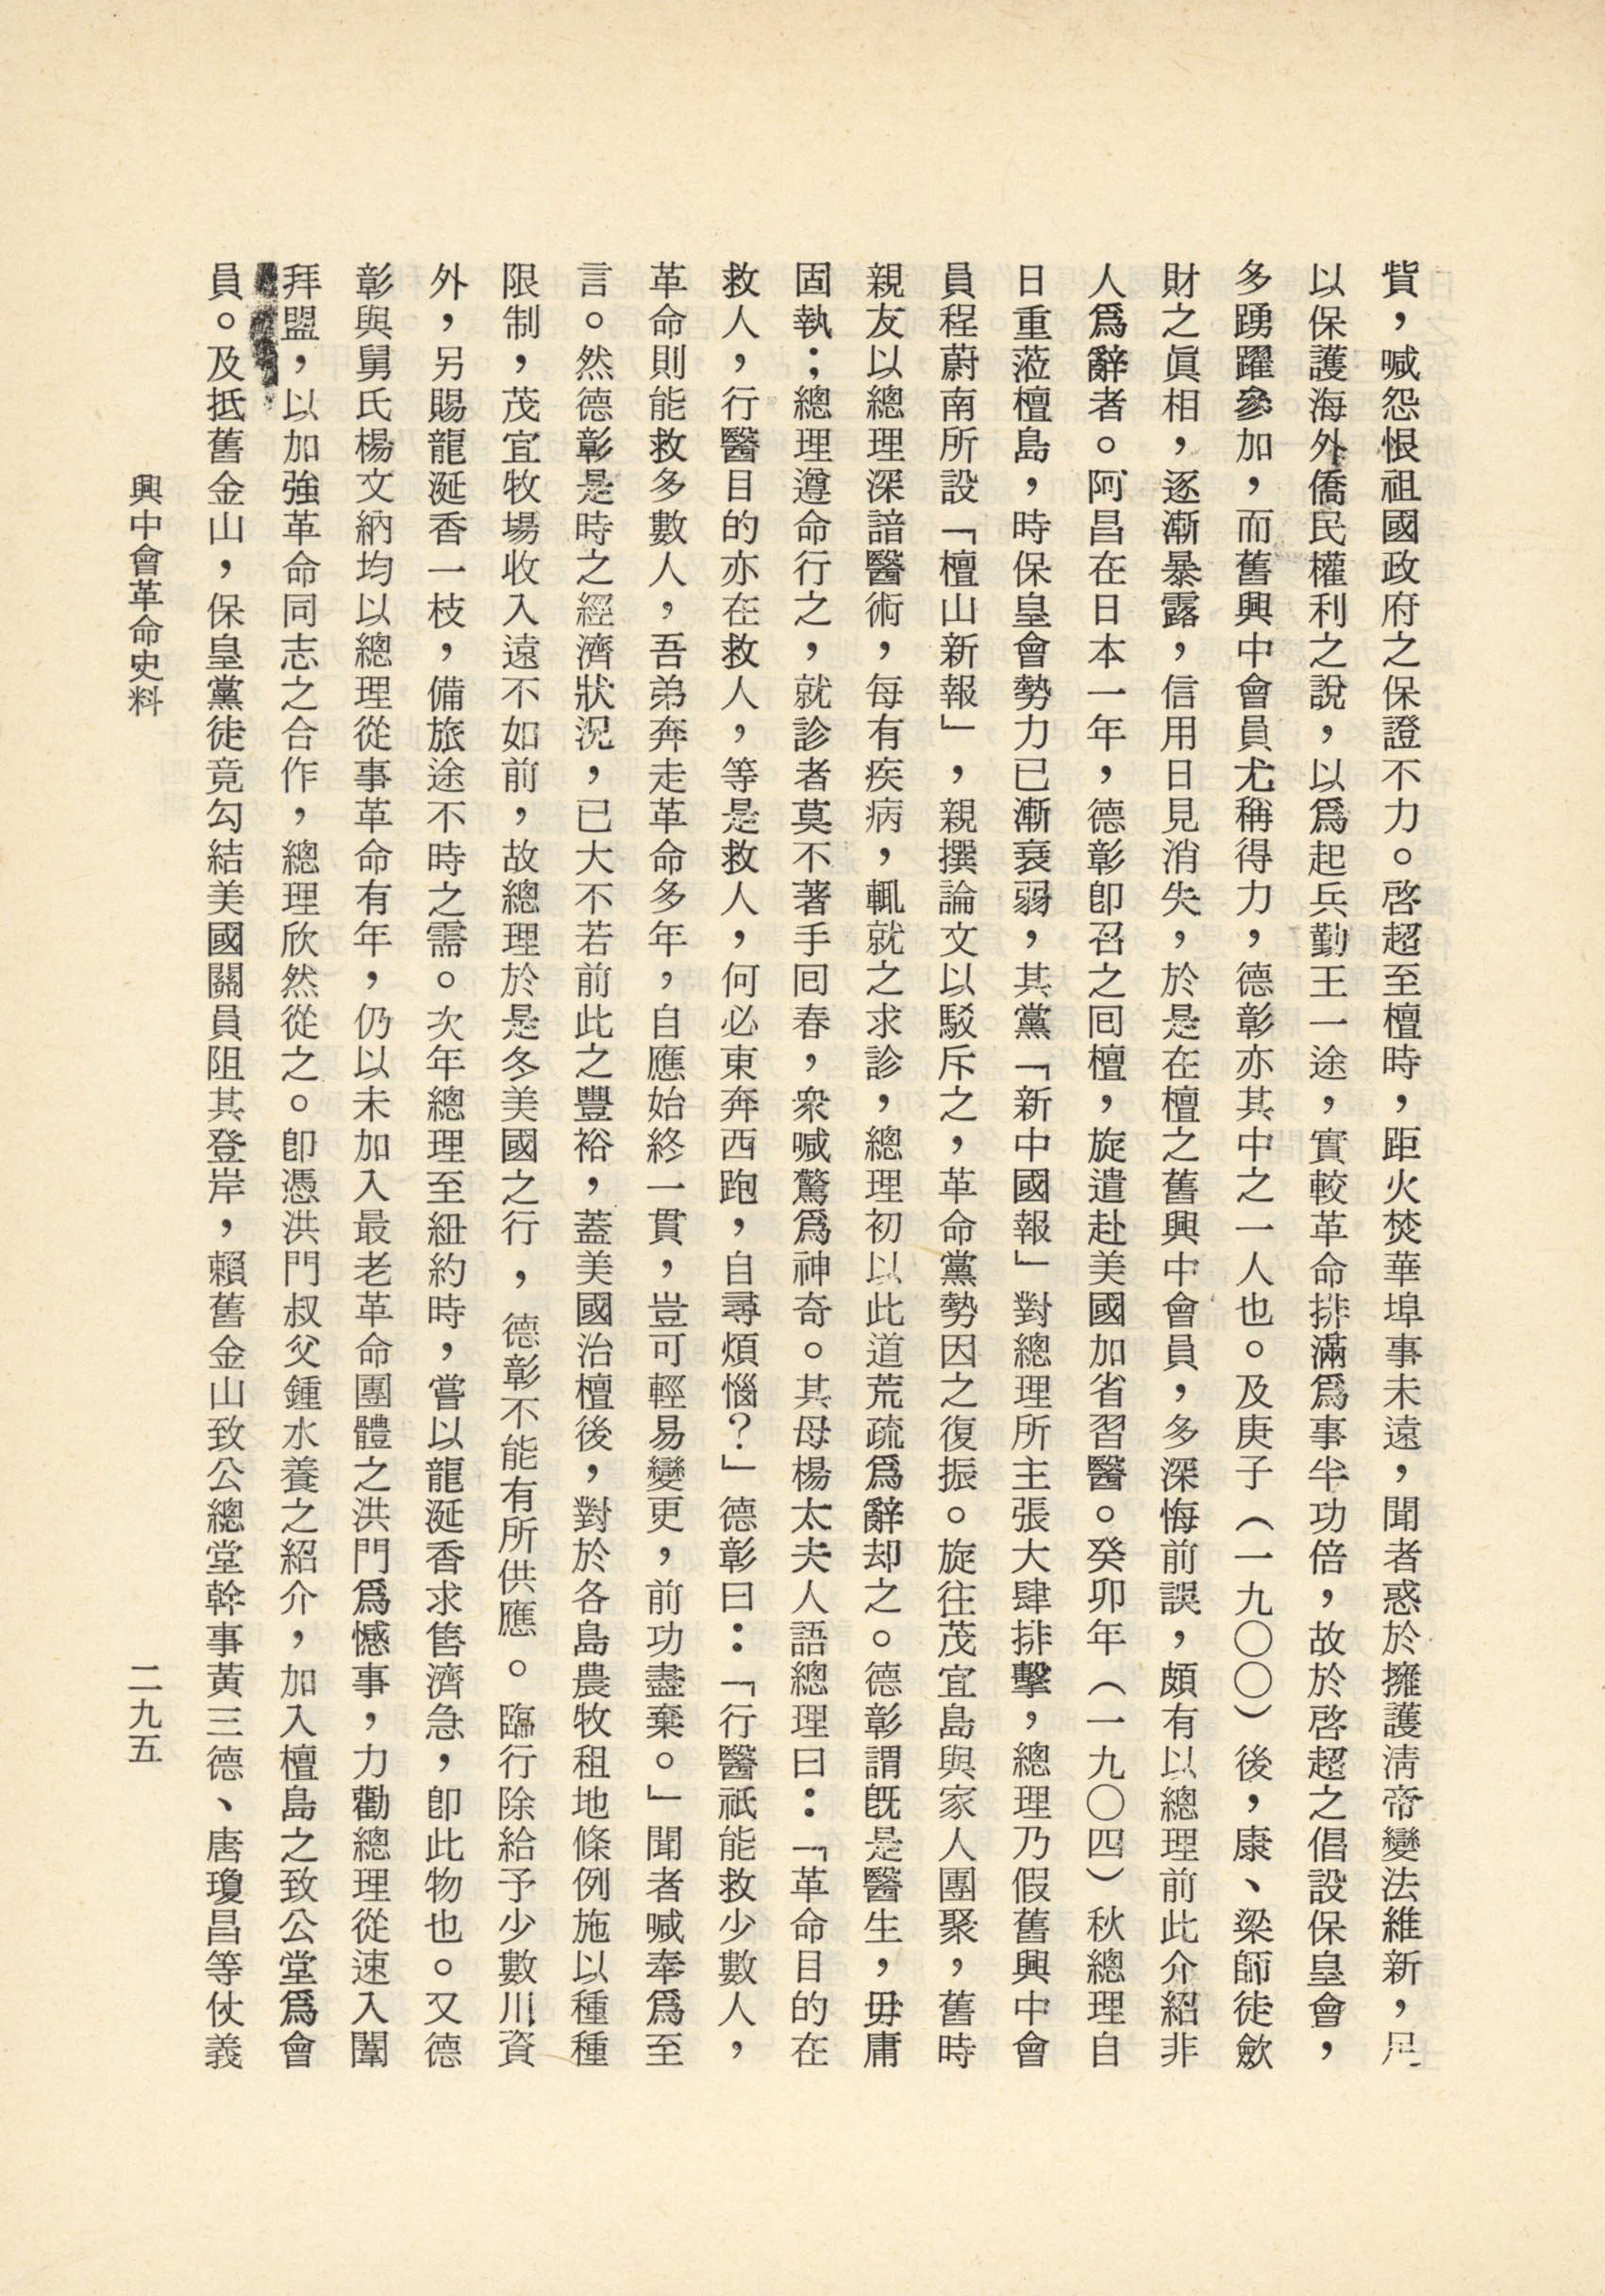 貲，喊怨恨祖國政府之保證不力。啓超至檀時，距火焚華埠事未遠，聞者惑於擁護淸帝變法維新，足
以保護海外僑民權利之說，以爲起兵勤王一途，實較革命排滿爲事半功倍，故於啓超之倡設保皇會，
多踴躍參加，而舊興中會員尤稱得力，德彰亦其中之一人也。及庚子（一九〇〇）後，康、梁師徒歛
財之眞相，逐漸暴露，信用日見消失，於是在檀之舊興中會員，多深悔前誤，頗有以總理前此介紹非
人爲辭者。阿昌在日本一年，德彰卽召之囘檀，旋遣赴美國加省習醫。癸卯年（一九〇四）秋總理自
日重蒞檀島，時保皇會勢力已漸衰弱，其黨「新中國報」對總理所主張大肆排擊，總理乃假舊興中會
員程蔚南所設「檀山新報」，親撰論文以駁斥之，革命黨勢因之復振。旋往茂宜島與家人團聚，舊時
親友以總理深諳醫術，每有疾病，輒就之求診，總理初以此道荒疏爲辭却之。德彰謂旣是醫生，毋庸
固執；總理遵命行之，就診者莫不著手囘春，衆喊驚爲神奇。其母楊太夫人語總理曰：「革命目的在
救人，行醫目的亦在救人，等是救人，何必東奔西跑，自尋煩惱？」德彰曰：「行醫祇能救少數人，
革命則能救多數人，吾弟奔走革命多年，自應始終一貫，豈可輕易變更，前功盡棄。」聞者喊奉爲至
言。然德彰是時之經濟狀況，已大不若前此之豐裕，蓋美國治檀後，對於各島農牧租地條例施以種種
限制，茂宜牧場收入遠不如前，故總理於是冬美國之行，德彰不能有所供應。臨行除給予少數川資
外，另賜龍涎香一枝，備旅途不時之需。次年總理至紐約時，嘗以龍涎香求售濟急，卽此物也。又德
彰與舅氏楊文納均以總理從事革命有年，仍以未加入最老革命團體之洪門爲憾事，力勸總理從速入闈
拜盟，以加強革命同志之合作，總理欣然從之。卽憑洪門叔父鍾水養之紹介，加入檀島之致公堂爲會
員。及抵舊金山，保皇黨徒竟勾結美國關員阻其登岸，賴舊金山致公總堂幹事黃三德、唐瓊昌等仗義
興中會革命史料
二九五